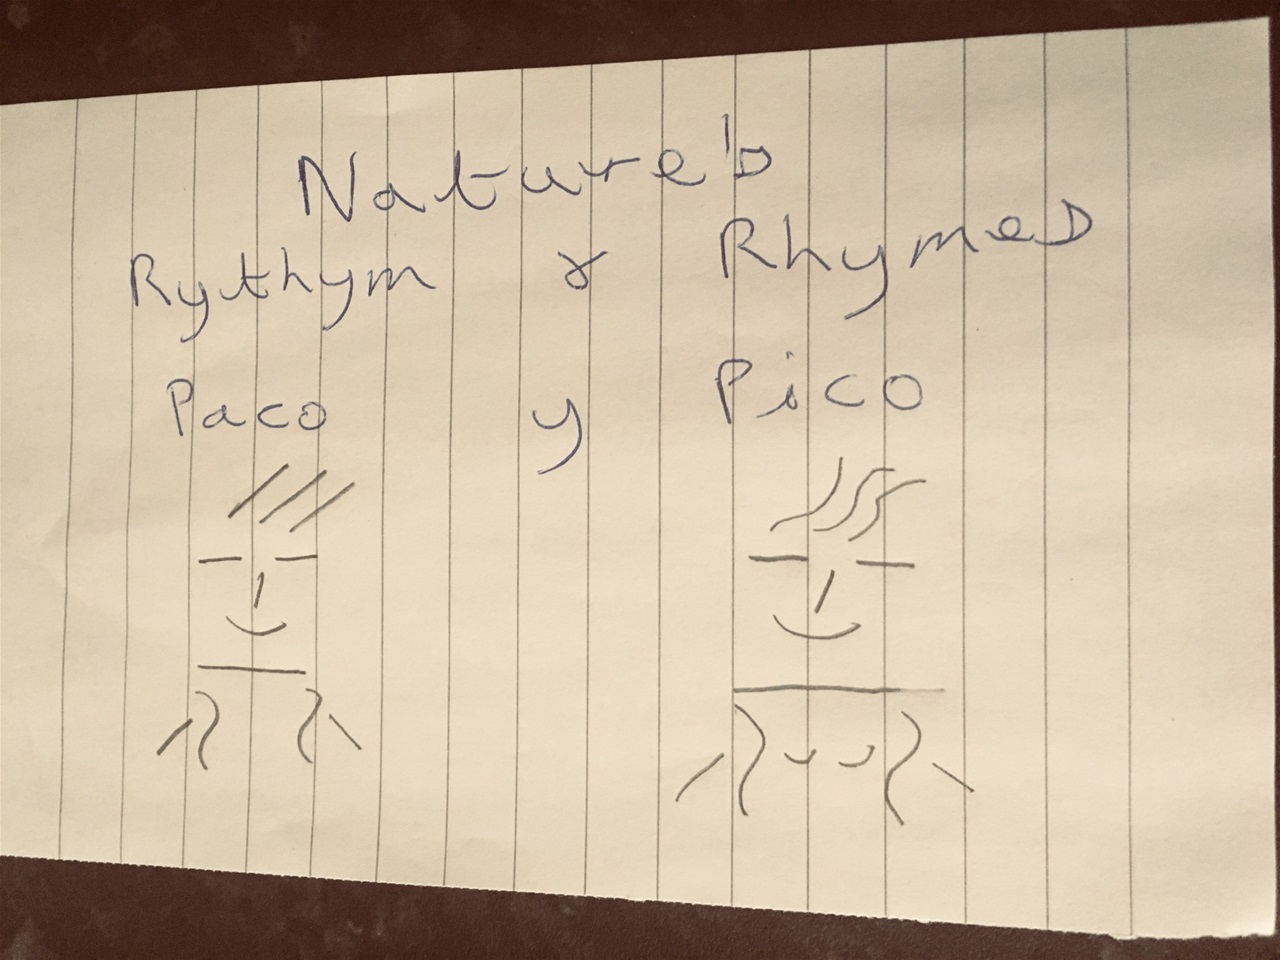 Nature's
Rythym & Rhymes
Paco y Pico